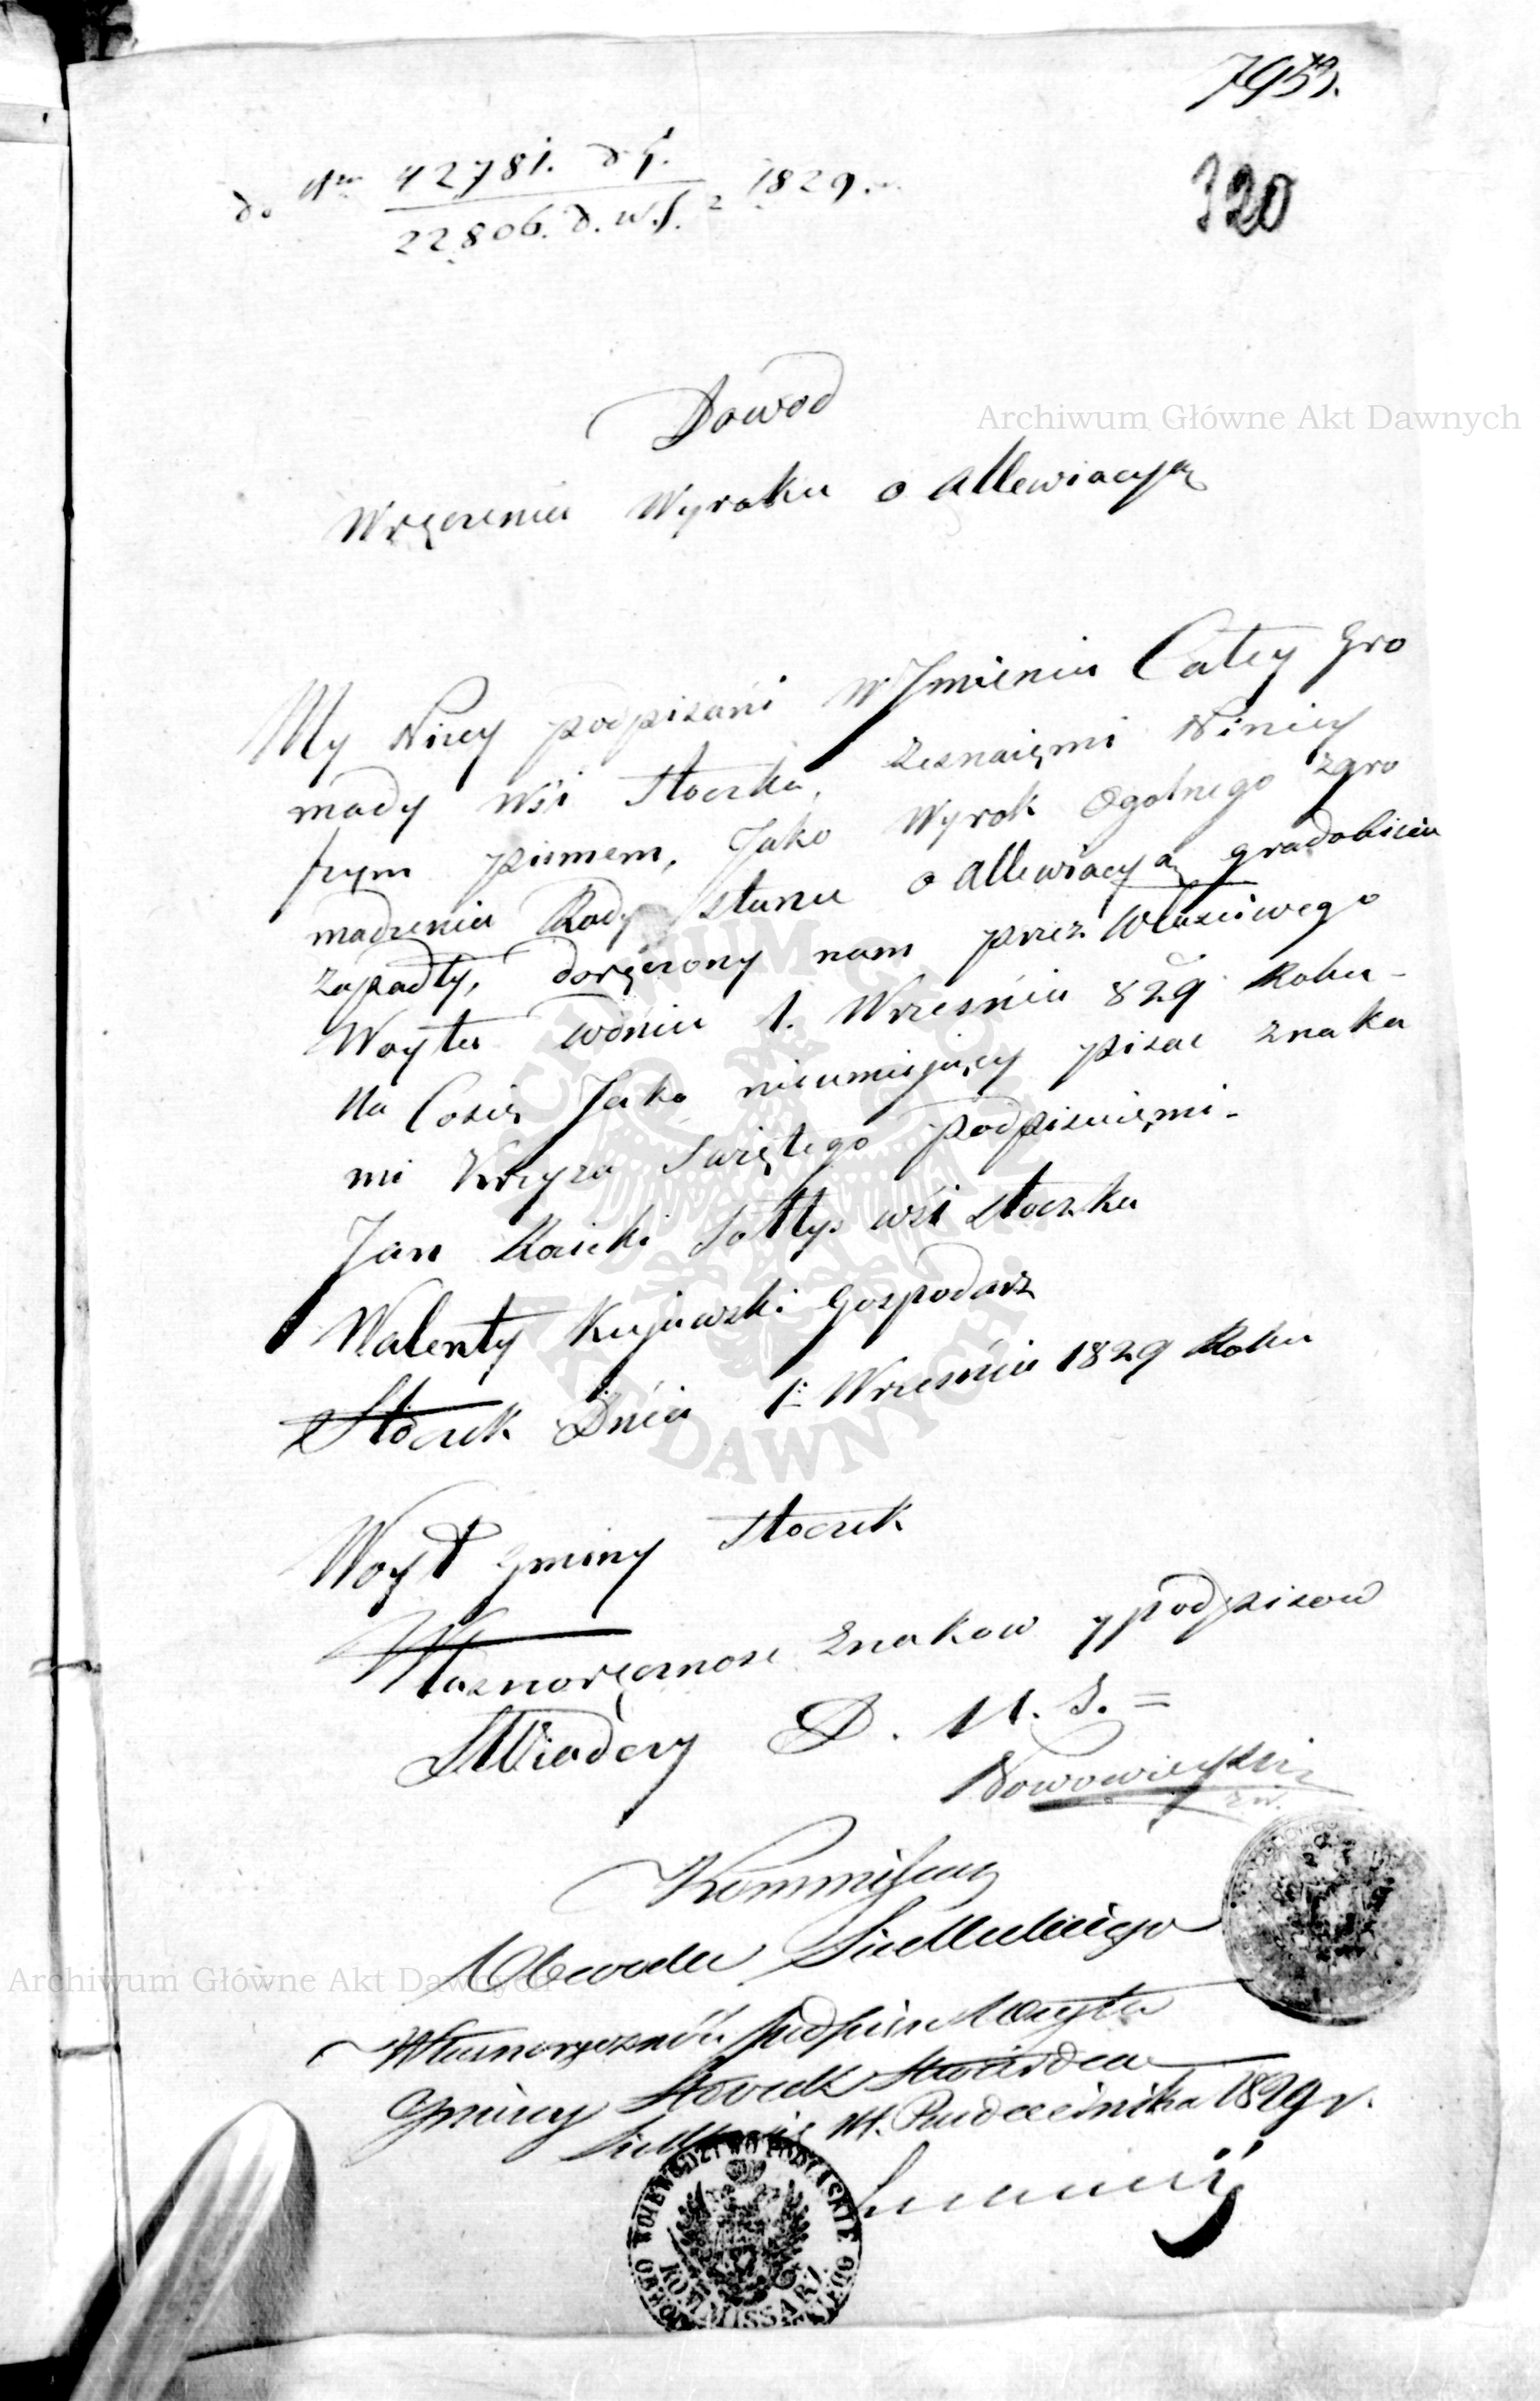 320
do Nru 42781. d. g.
22806. d. w. s. z 1829.
Dowod
Wręczenia Wyroku o allewiacyą
My Nizey podpisani w Jmieniu Całey Gro
mady Wsi Stoczka, zeznaięmi Niniey
szym pismem, Jako Wyrok Ogolnego Zgro
madzenia Rady Stanu o allewiacyą gradobicia
zapadły, doręczony nam przez Właściwego
Woyta wdniu 1. Wrzesnia 829 Roku -
Na Cosię Jako nieumiejący pisac znaka
mi Krzyza Swiętego podpisuięmi -
Jan Sołtys wsi Stoczka
Walenty Kujawski Gospodarz
Stoczek Dnia 1. Wrzesnia 1829 Roku
Woyt Gminy Stoczek
Własnoręcznosc Znakow y podpisow
Swiadczy
Nowowieyski
Kommissarz
Obwodu Siedleckiego
Własnoręczność podpisu Woyta
Gminy Stoczek Stwierdza
Października 1829 r.
WOJEWODZTWO PODLASKIE
KOMMISSARZ
Archiwum Główne Akt Dawnych
Archiwum Główne Akt Dawnych
ARCHIWUM GŁÓWNE AKT DAWNYCH